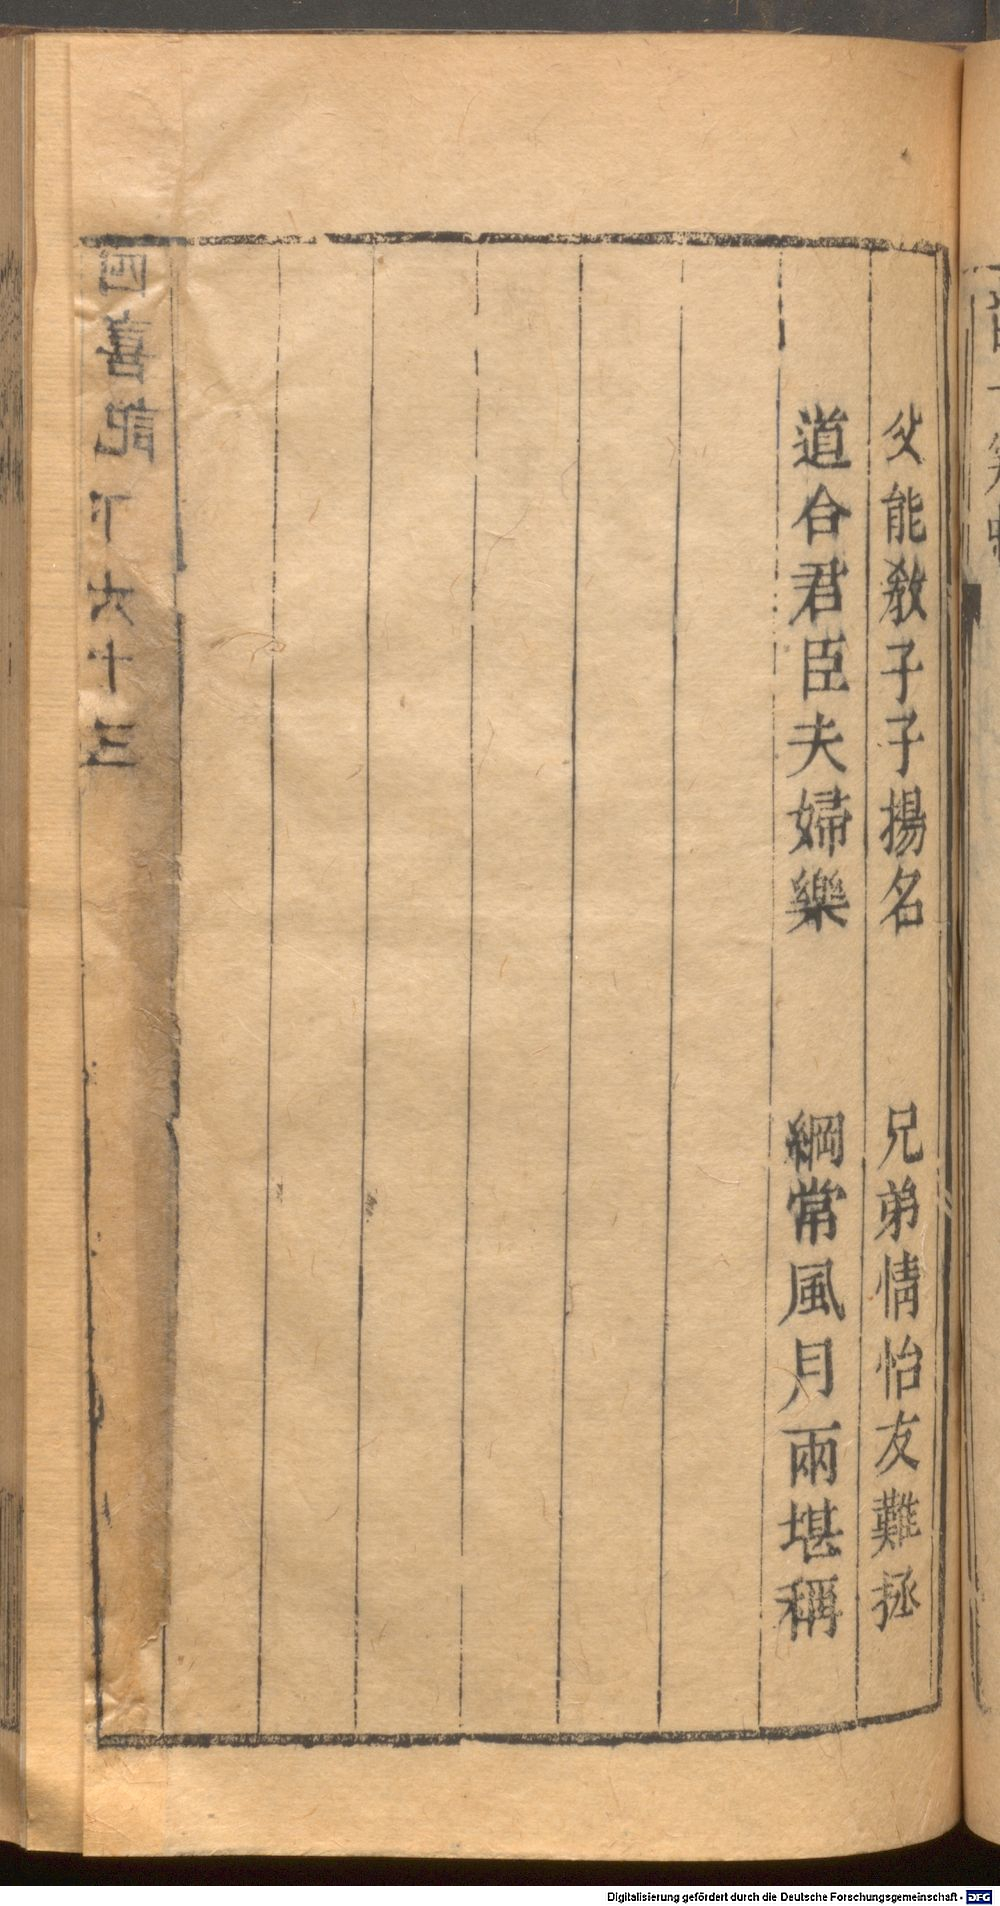 父能教子子揚名　兄弟情怡友難拯
道合君臣夫婦樂　綱常風月兩堪稱
四喜記　下　六十三
Digitalisierung gefördert durch die Deutsche Forschungsgemeinschaft - DFG